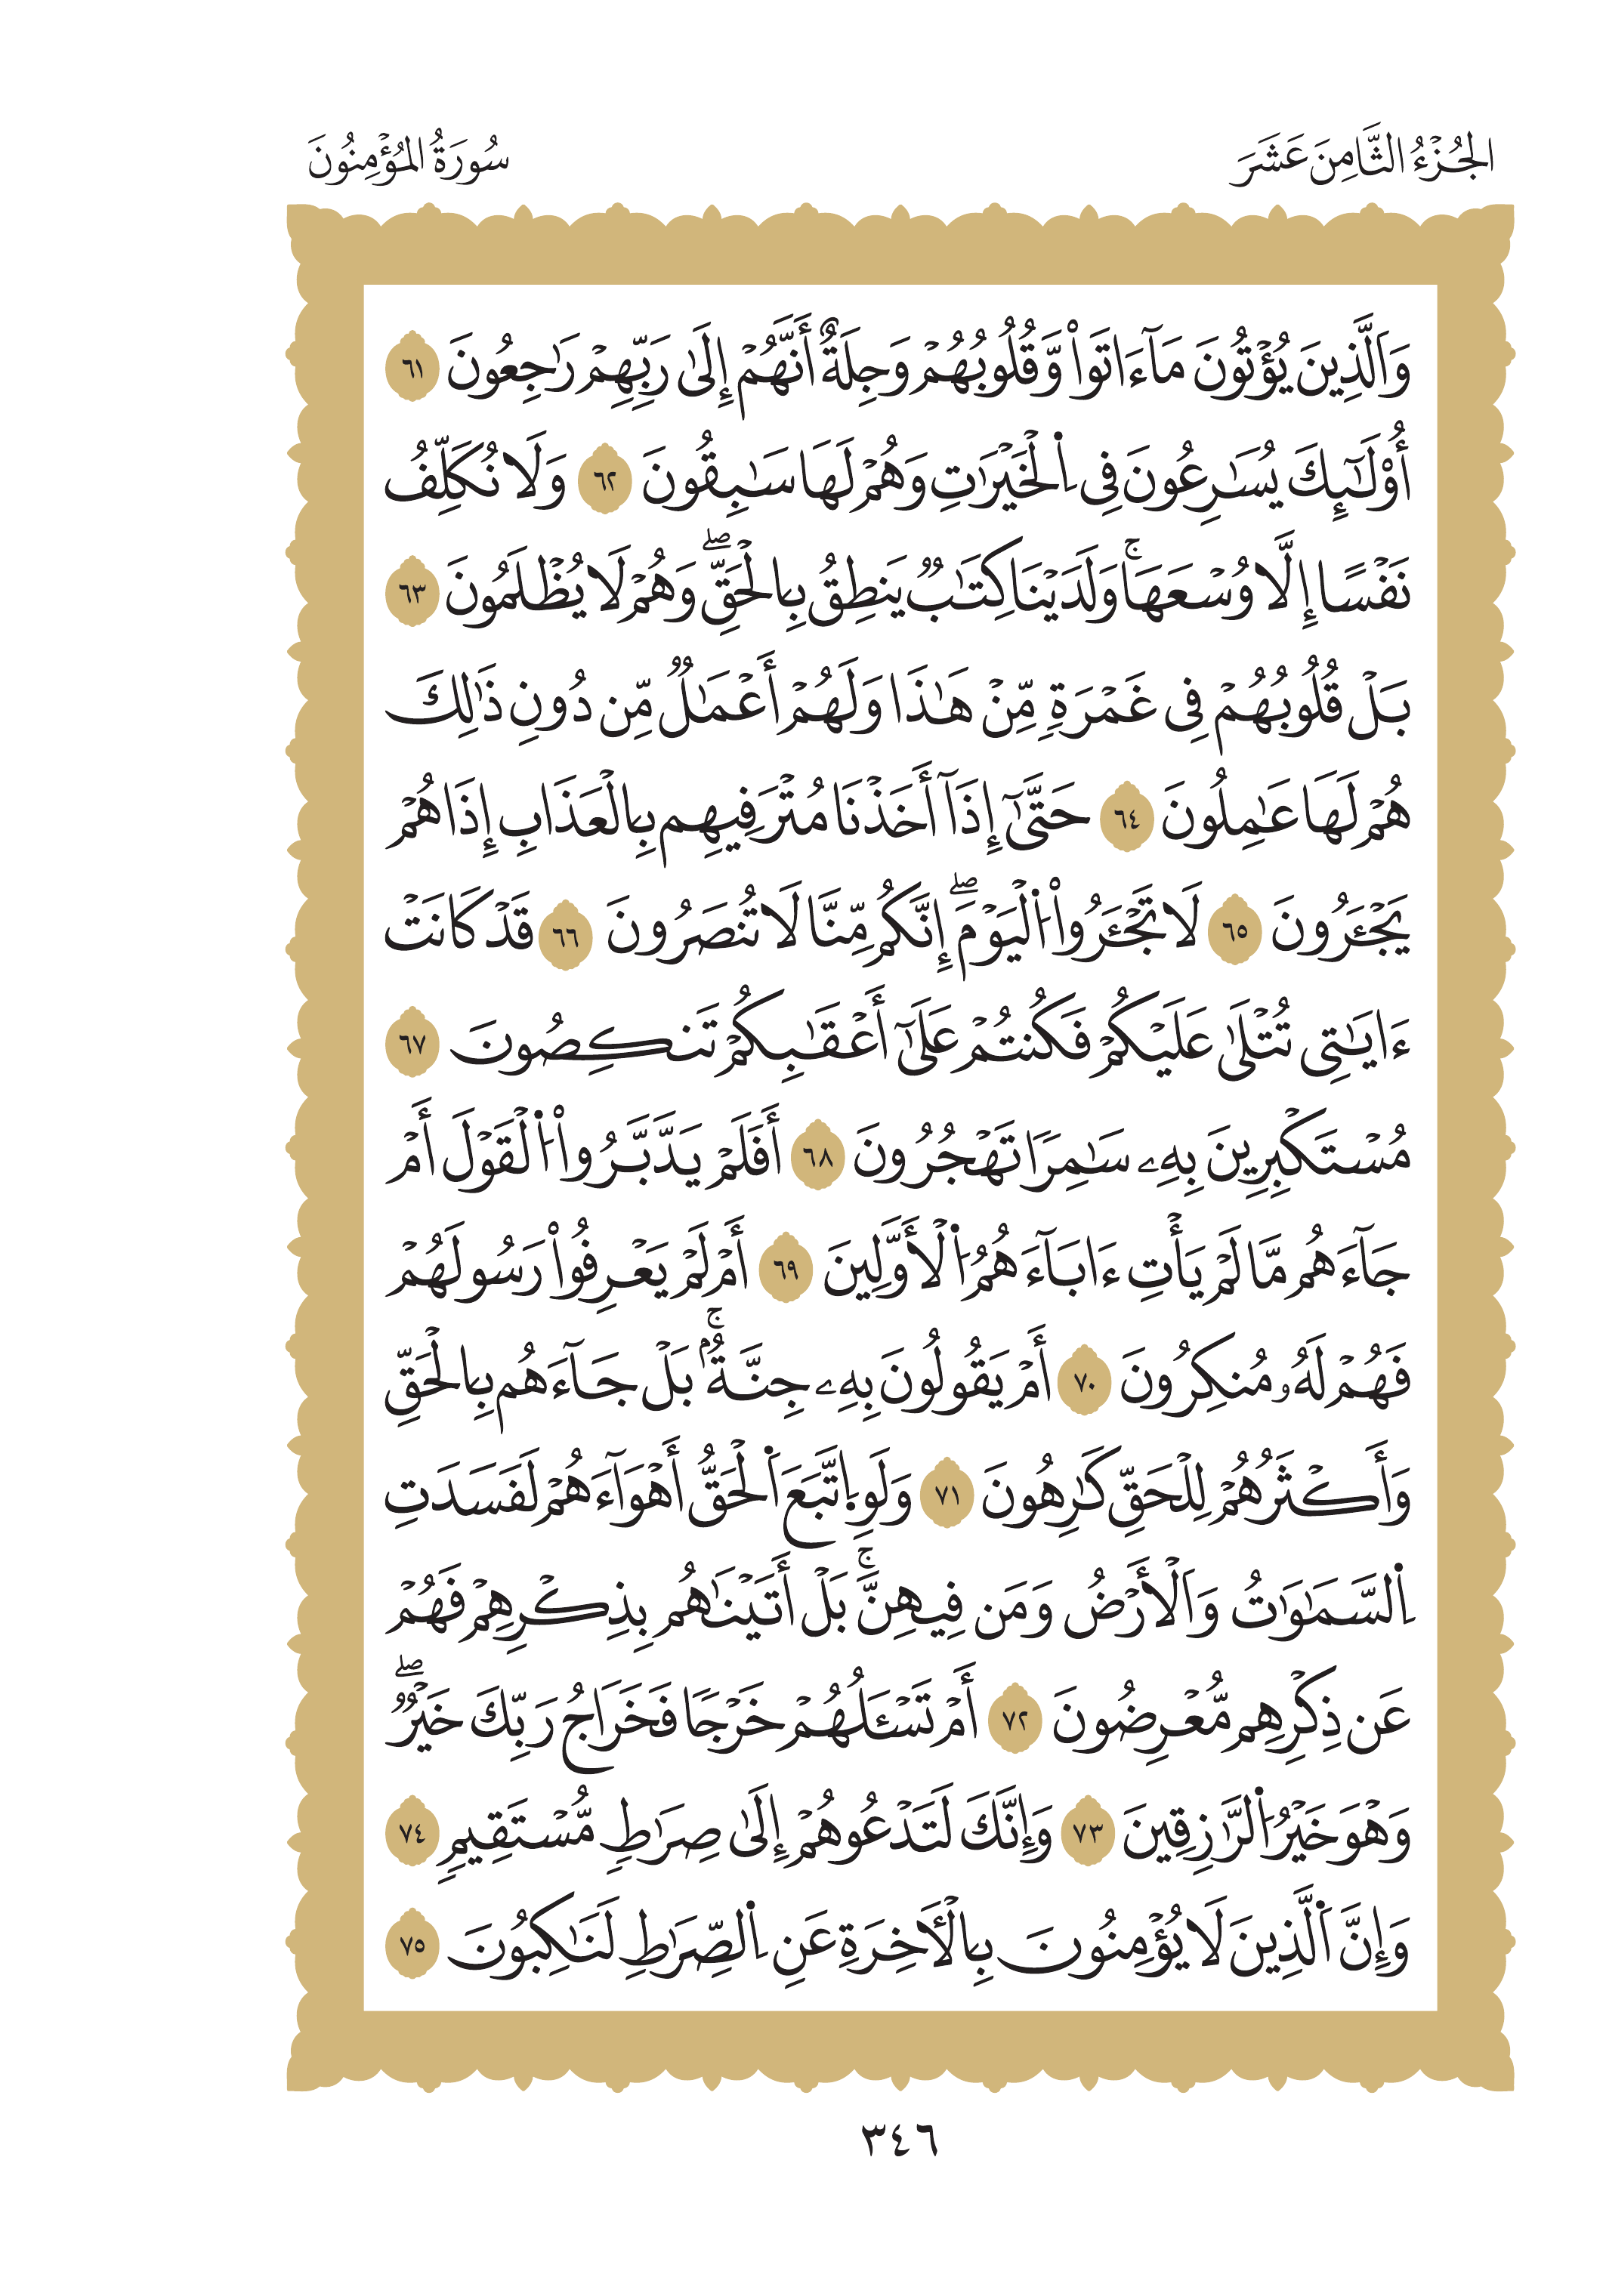 الجُزْءُ الثَّامِنَ عَشَرَ
سُورَةُ المُؤْمِنُونَ
وَاَلَّذِينَ يُؤْتُونَ مَآ ءَاتَواْ وَّقُلُوبُهُمْ وَجِلَةٌ أَنَّهُمْ إِلَىٰ رَبِّهِمْ رَٰجِعُونَ ٦١
أُوْلَٰٓئِكَ يُسَٰرِعُونَ فِى اِ۬لْخَيْرَٰتِ وَهُمْ لَهَا سَٰبِقُونَ ٦٢ وَلَا نُكَلِّفُ
نَفْسًا إِلَّا وُسْعَهَاۚ وَلَدَيْنَا كِتَٰبٌ يَنطِقُ بِالْحَقِّۖ وَهُمْ لَا يُظْلَمُونَ ٦٣
بَلْ قُلُوبُهُمْ فِى غَمْرَةٍ مِّنْ هَٰذَا وَلَهُمْ أَعْمَٰلٌ مِّن دُونِ ذَٰلِكَ
هُمْ لَهَا عَٰمِلُونَ ٦٤ حَتَّىٰٓ إِذَآ أَخَذْنَا مُتْرَفِيهِم بِالْعَذَابِ إِذَا هُمْ
يَجْـَٔرُونَ ٦٥ لَا تَجْـَٔرُواْ اُ۬لْيَوْمَۖ إِنَّكُم مِّنَّا لَا تُنصَرُونَ ٦٦ قَدْ كَانَتْ
ءَايَٰتِى تُتْلَىٰ عَلَيْكُمْ فَكُنتُمْ عَلَىٰٓ أَعْقَٰبِكُمْ تَنكِصُونَ ٦٧
مُسْتَكْبِرِينَ بِهِۦ سَٰمِرًا تَهْجُرُونَ ٦٨ أَفَلَمْ يَدَّبَّرُواْ اُ۬لْقَوْلَ أَمْ
جَآءَهُم مَّا لَمْ يَأْتِ ءَابَآءَهُمُ اُ۬لْأَوَّلِينَ ٦٩ أَمْ لَمْ يَعْرِفُواْ رَسُولَهُمْ
فَهُمْ لَهُۥ مُنكِرُونَ ٧٠ أَمْ يَقُولُونَ بِهِۦ جِنَّةُۢۚ بَلْ جَآءَهُم بِالْحَقِّ
وَأَكْثَرُهُمْ لِلْحَقِّ كَٰرِهُونَ ٧١ وَلَوِ اِ۪تَّبَعَ اَ۬لْحَقُّ أَهْوَآءَهُمْ لَفَسَدَتِ
اِ۬لسَّمَٰوَٰتُ وَالْأَرْضُ وَمَن فِيهِنَّۚ بَلْ أَتَيْنَٰهُم بِذِكْرِهِمْ فَهُمْ
عَن ذِكْرِهِم مُّعْرِضُونَ ٧٢ أَمْ تَسْـَٔلُهُمْ خَرْجًا فَخَرَاجُ رَبِّكَ خَيْرٌۖ
وَهْوَ خَيْرُ اُ۬لرَّٰزِقِينَ ٧٣ وَإِنَّكَ لَتَدْعُوهُمْ إِلَىٰ صِرَٰطٍ مُّسْتَقِيمٍ ٧٤
وَإِنَّ اَ۬لَّذِينَ لَا يُؤْمِنُونَ بِالْأٓخِرَةِ عَنِ اِ۬لصِّرَٰطِ لَنَٰكِبُونَ ٧٥
٣٤٦